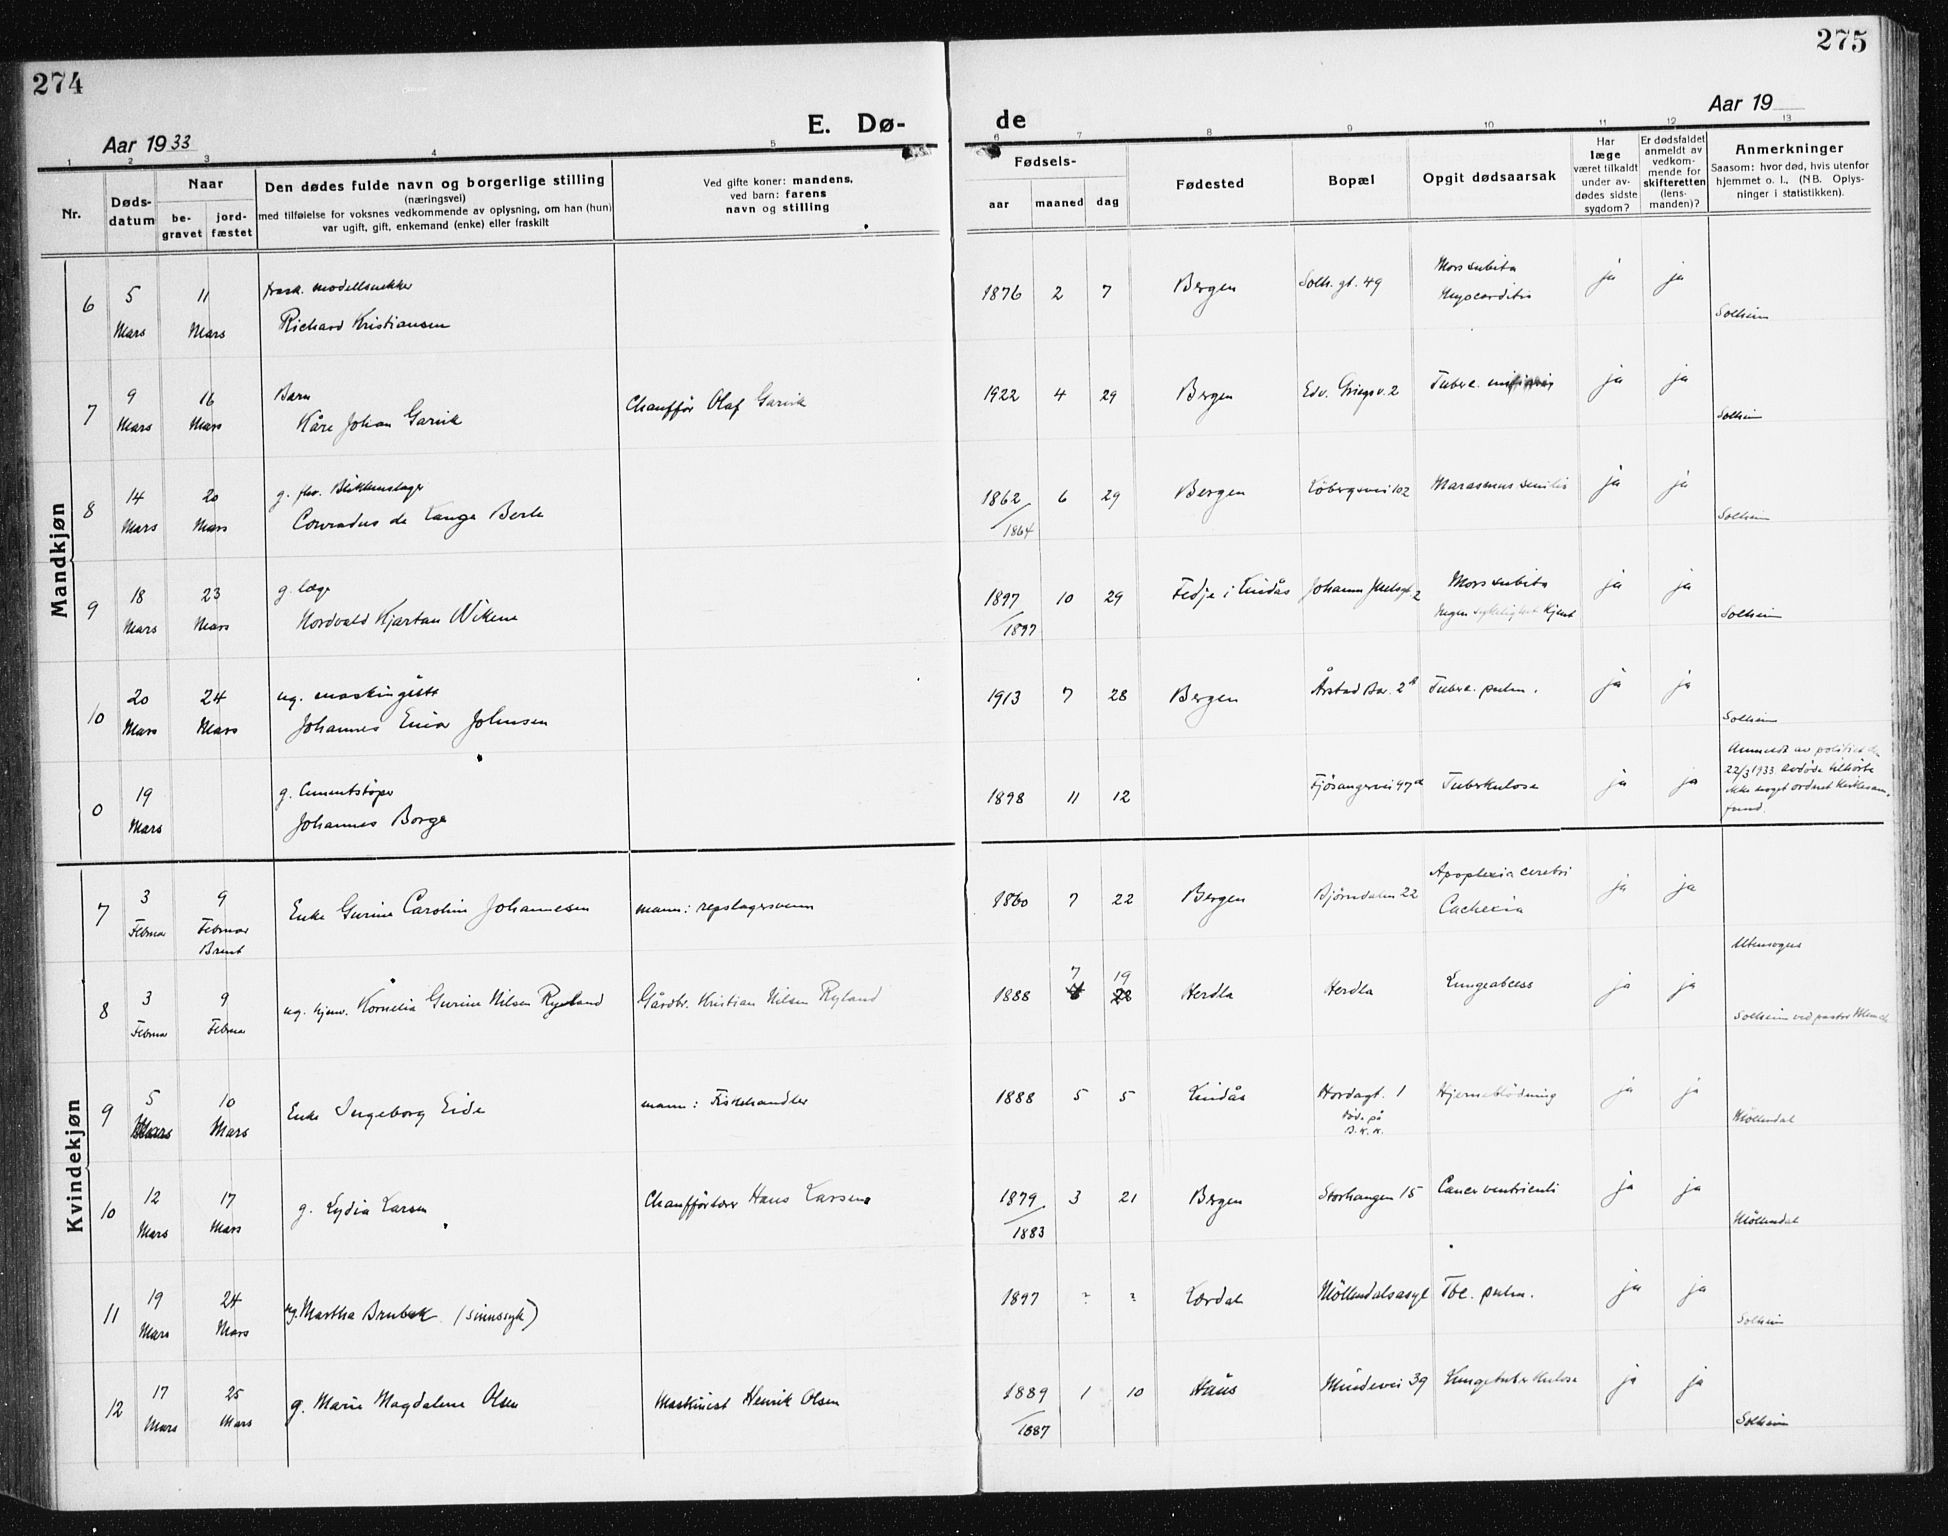 274
275
E. Dø-
de
Aar 1933
Aar 19
1 2 3 4 5 6 7 8 9 10 11 12 13
Nr.
Døds-
datum
Naar
be-
gravet
jord-
fæstet
Den dødes fulde navn og borgerlige stilling
(næringsvei)
med tilføielse for voksnes vedkommende av oplysning, om han (hun)
var ugift, gift, enkemand (enke) eller fraskilt
Ved gifte koner: mandens,
ved barn: farens
navn og stilling
Fødsels-
aar
maaned
dag
Fødested
Bopæl
Opgit dødsaarsak
Har
læge
været tilkaldt
under av-
dødes sidste
sygdom?
Er dødsfaldet
anmeldt av
vedkom-
mende for
skifteretten
(lens-
manden)?
Anmerkninger
Saasom: hvor død, hvis utenfor
hjemmet o. l., (NB. Oplys-
ninger i statistikken).
Mandkjøn
6
5
Mars
11
Mars
frask. modellsnekker
Richard Kristiansen
1876 2 7
Bergen
Solh. gt. 49
Mors subita
Myocarditis
ja ja
Solheim
7
9
Mars
16
Mars
Barn
Kåre Johan Garvik
Chauffør Olaf Garvik
1922 4 29
Bergen
Edv. Griegsv. 2
Tuberc.
ja ja
Solheim
8
14
Mars
20
Mars
g. fhv. Blikkenslager
Conradus de Lange Berle
1862 6 29
/1864
Bergen
Løbergsvei 102
Marasmus senilis
ja ja
Solheim
9
18
Mars
23
Mars
g. læge
Nordvald Kjartan Vikene
1897 10 29
/1897
Fedje i Lindås
Mors subita
Ingen sykelighet kjent
ja ja
Solheim
10
20
Mars
24
Mars
ug. maskingått
Johannes Einar Johnsen
1913 7 28
Bergen
Årstad Bar. 2
Tuberc. pulm.
ja ja
Solheim
0
19
Mars
g. Cementstøper
Johannes Borge
1898 11 12
Fjøsangervei 47a
Tuberkulose
ja ja
Anmeldt av politiet den
22/3 1933 avdøde tilhørte
ikke noget ordnet kirkesam-
fund.
Kvindekjøn
7
3
Februar
9
Februar
Brent
Enke Gurine Caroline Johannesen
mann: repslagersvenn
1860 7 22
Bergen
Bjørndalen 22
Apoplexia cerebri
Cachexia
ja ja
Utensogns
8
3
Februar
9
Februar
ug. hjem. Kornelia Gurine Nilsen Ryland
Gårdbr. Kristian Nilsen Ryland
7 19
1888
Herdla
Herdla
Lungeabcess
ja ja
Solheim ved pastor
9
5
Mars
10
Mars
Enke Ingeborg Eide
mann: Fiskehandler
1888 5 5
Lindås
Hordagt. 1
død på
B.K.K.
Hjerneblødning
ja ja
Møllendal
10
12
Mars
17
Mars
g. Lydia Larsen
Hans Larsen
1879 3 21
/1883
Bergen
Storhaugen 15
Cancer ventriculi
ja ja
Møllendal
11
19
Mars
24
Mars
ug. Martha Brubæk (sinnssyk)
1897 ? ?
Lærdal
Møllendalsasyl
Tbc. pulm.
ja ja
Solheim
12
17
Mars
25
Mars
g. Marie Magdalene Olsen
Maskinist Henrik Olsen
1889 1 10
/1887
Haus
Mindevei 39
Lungetuberkulose
ja ja
Solheim